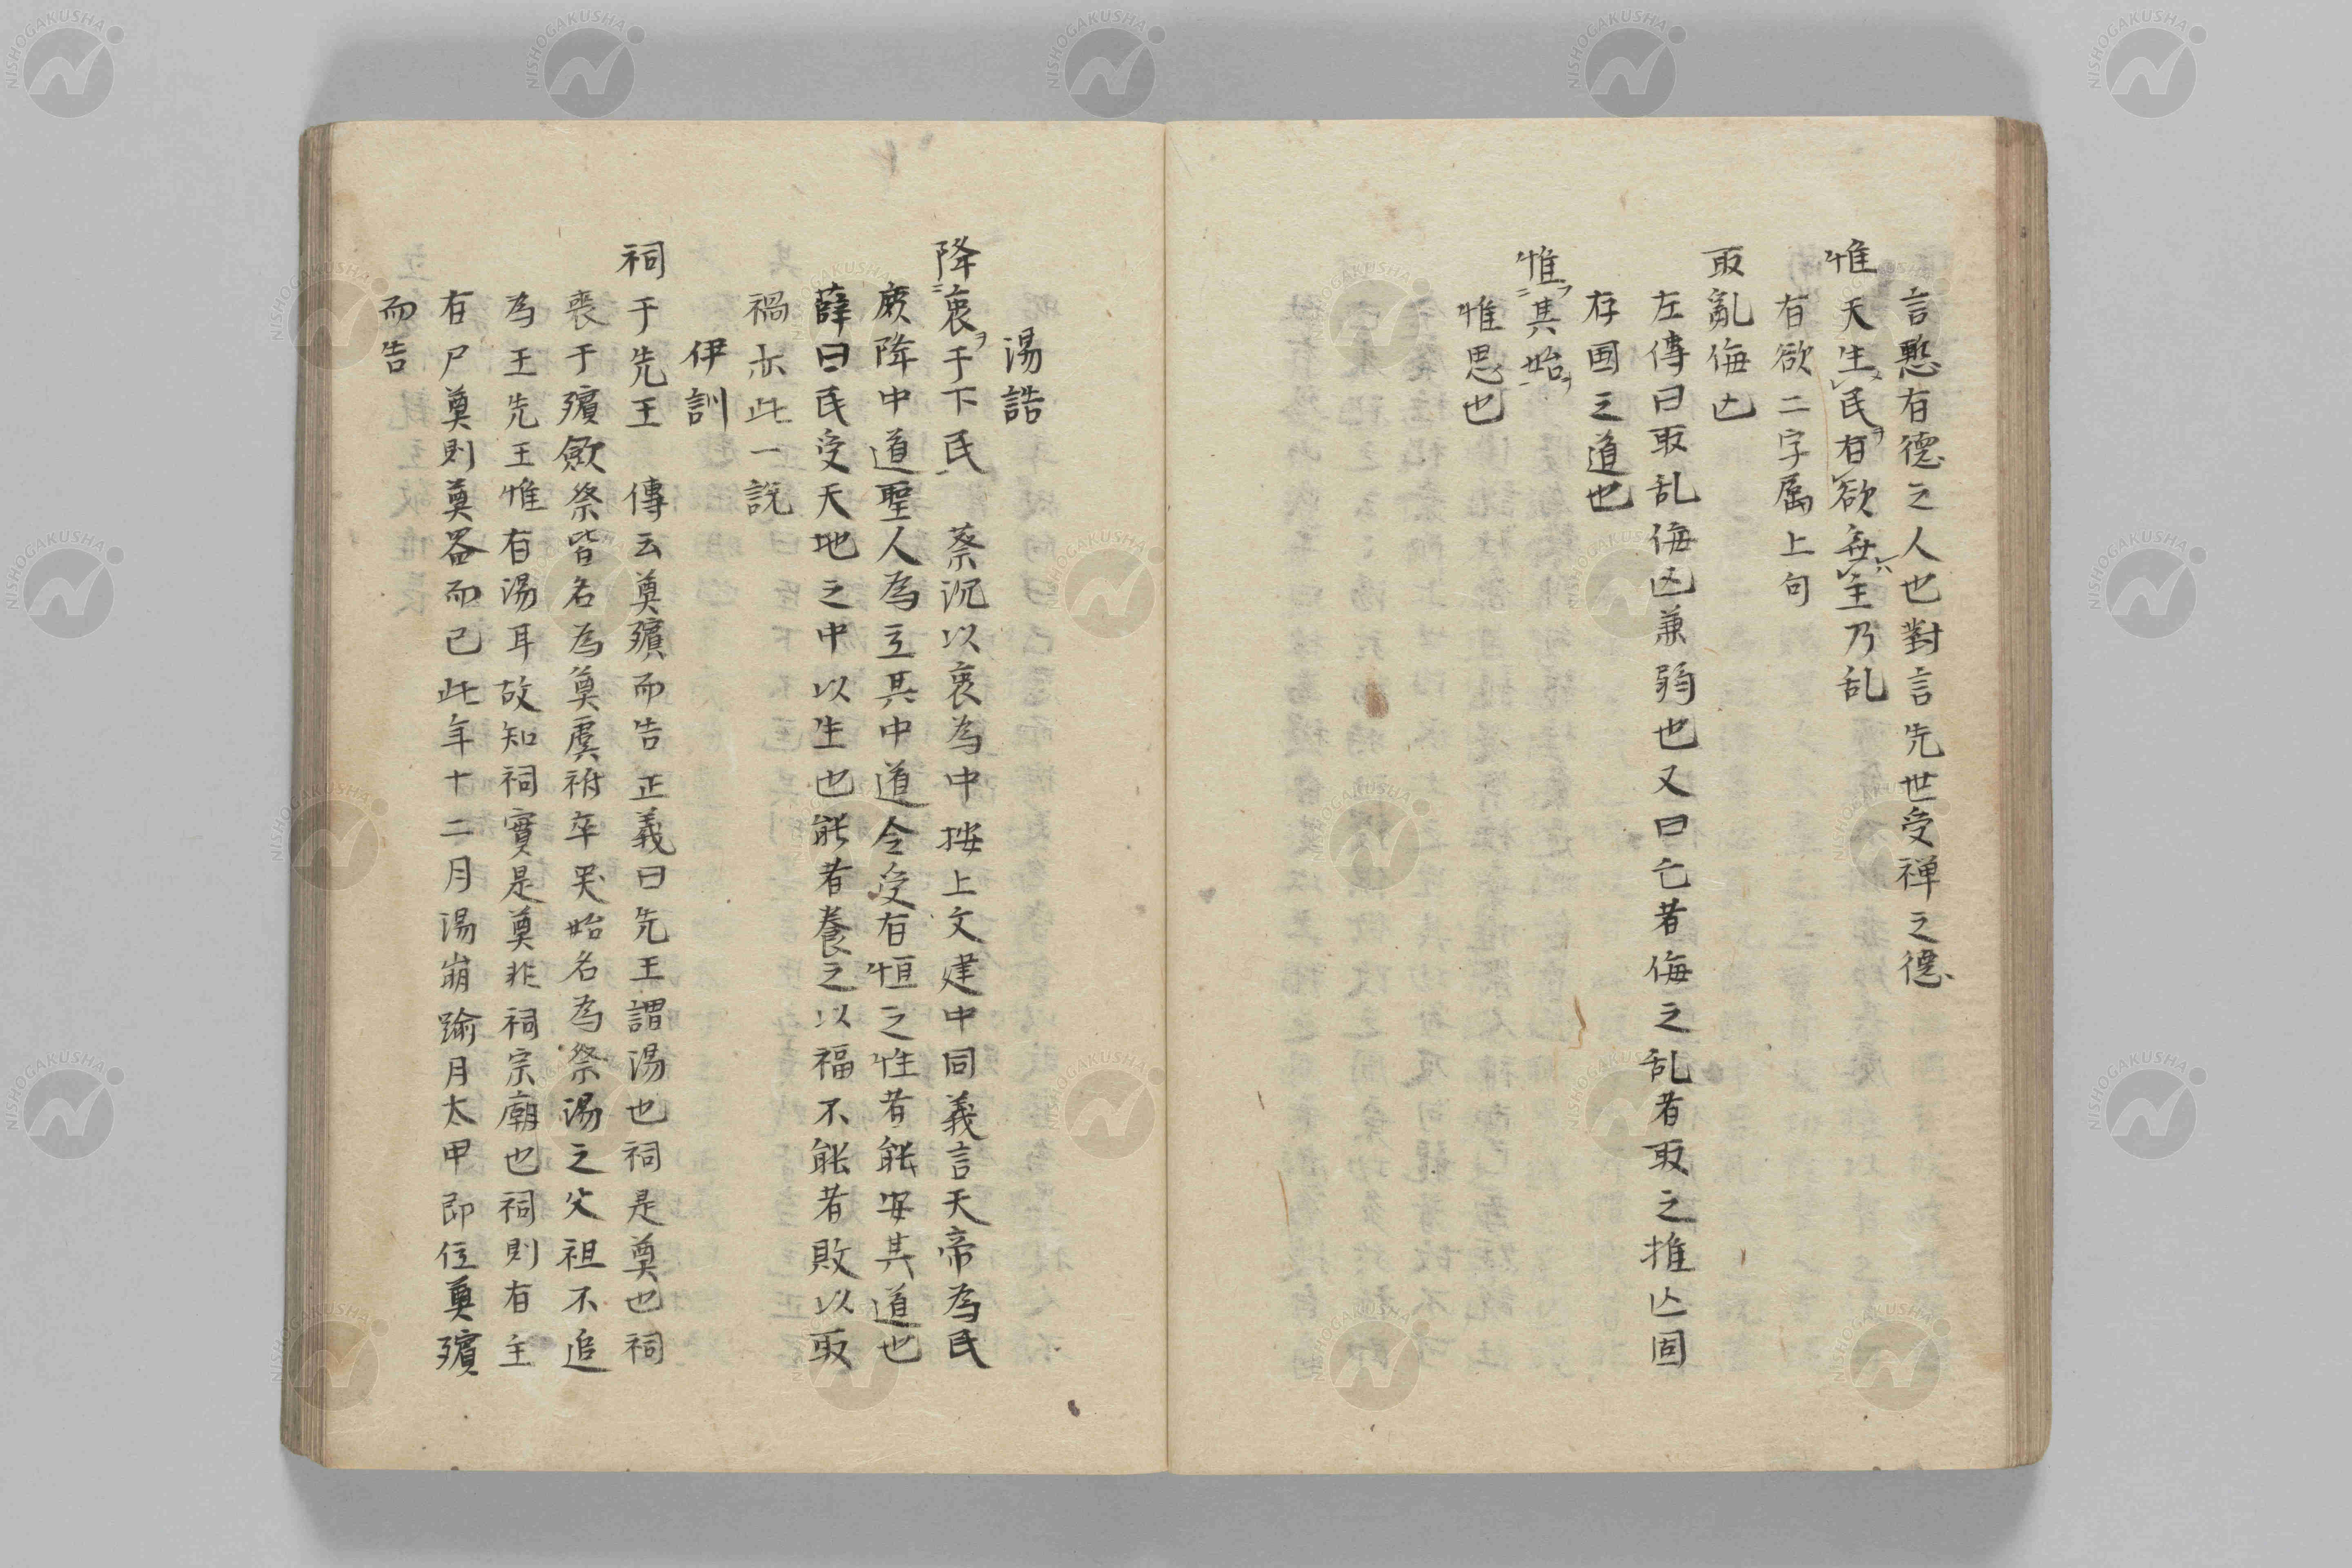 言慙有德之人也對言先世受禅之德
惟天生民有欲無主乃乱
有欲二字属上句
取亂侮亡
左傳曰取乱侮凶兼弱也又曰亡者侮之乱者取之推亡固
存国之道也
惟其始
惟思也
湯誥
降衷于下民 蔡沉以衷為中按上文建中同義言天帝為民
厥降中道聖人為立其中道令受有恒之性者能安其道也
薛曰民受天地之中以生也能者養之以福不能者敗以取
禍亦此一說
伊訓
祠于先王 傳云奠殯而告正義曰先王謂湯也祠是奠也祠
喪于殯斂祭皆名為奠虞祔卒哭始名為祭湯之父祖不追
為王先王惟有湯耳故知祠實是奠非祠宗廟也祠則有主
有尸奠則奠器而已此年十二月湯崩踰月太甲即位奠殯
而告
NISHOGAKUSHA